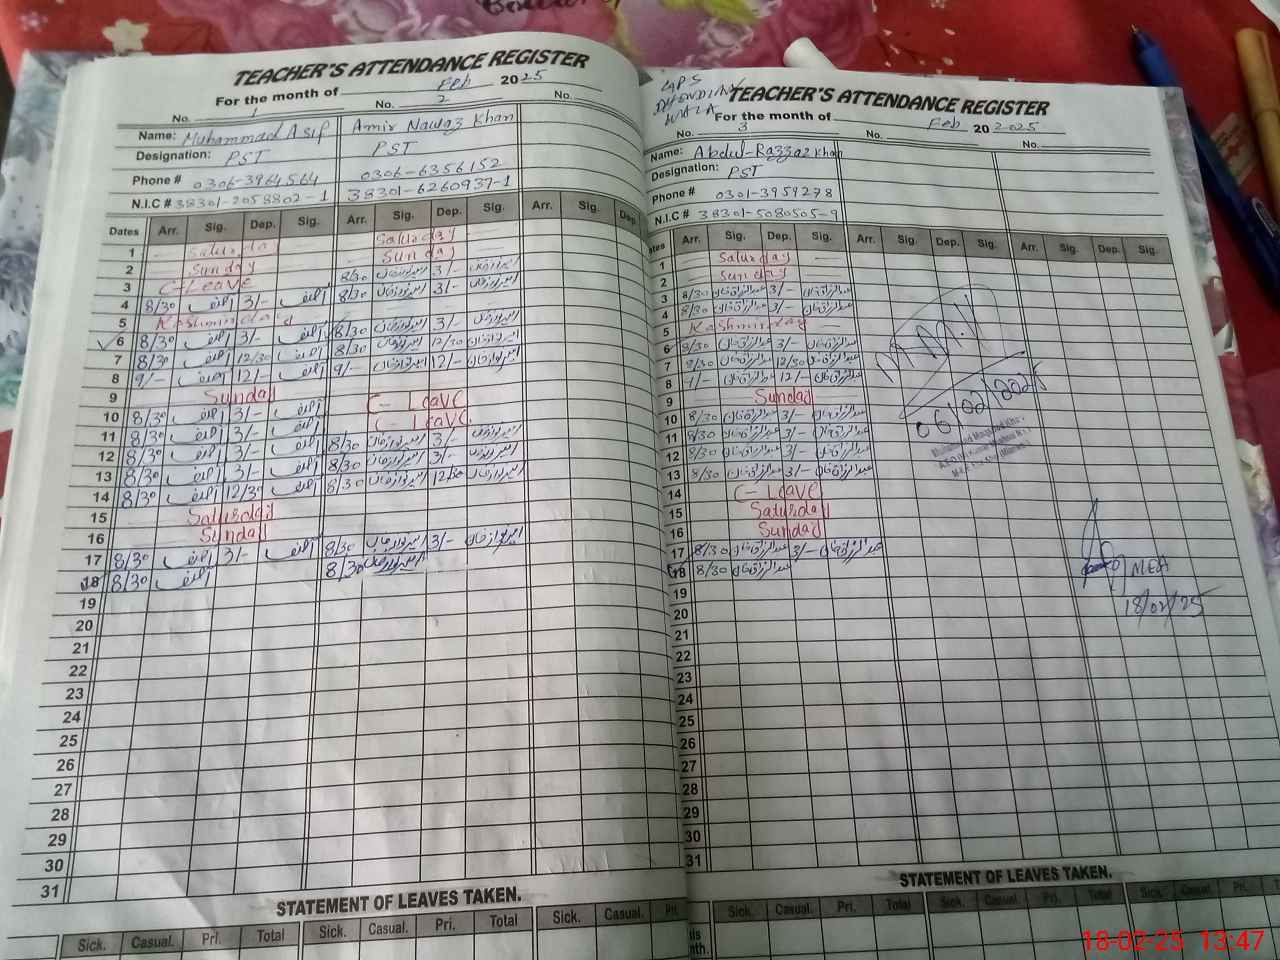 TEACHER'S ATTENDANCE REGISTER
For the month of Feb 2025
No. 1 No. 2 No.
Name: Muhammad Asif Amir Nawaz Khan
Designation: PST PST
Phone # 0306-3964564 0306-6356152
N.I.C # 38301-2058802-1 38301-6260937-1
Dates Arr. Sig. Dep. Sig. Arr. Sig. Dep. Sig. Arr. Sig. Dep.
1 Saturday Saturday
2 Sunday Sunday
3 C-Leave 8/30 امیرنوازخان 3/- امیرنوازخان
4 8/30 آصف 3/- آصف 8/30 امیرنوازخان 3/- امیرنوازخان
5 Kashmir day
6 8/30 آصف 3/- آصف 8/30 امیرنوازخان 3/- امیرنوازخان
7 8/30 آصف 12/30 آصف 8/30 امیرنوازخان 12/30 امیرنوازخان
8 9/- آصف 12/- آصف 9/- امیرنوازخان 12/- امیرنوازخان
9 Sunday
10 8/30 آصف 3/- آصف C-Leave
11 8/30 آصف 3/- آصف C-Leave
12 8/30 آصف 3/- آصف 8/30 امیرنوازخان 3/- امیرنوازخان
13 8/30 آصف 3/- آصف 8/30 امیرنوازخان 3/- امیرنوازخان
14 8/30 آصف 12/30 آصف 8/30 امیرنوازخان 12/30 امیرنوازخان
15 Saturday
16 Sunday
17 8/30 آصف 3/- آصف 8/30 امیرنوازخان 3/- امیرنوازخان
18 8/30 آصف 8/30 امیرنوازخان
19
20
21
22
23
24
25
26
27
28
29
30
31
STATEMENT OF LEAVES TAKEN.
Sick. Casual. Pri. Total Sick. Casual. Pri. Total Sick. Casual. Pri
GPS
WALA
TEACHER'S ATTENDANCE REGISTER
For the month of Feb 20 2025
No. 3 No. No.
Name: Abdul-Razzaz Khan
Designation: PST
Phone # 0301-3959278
N.I.C # 38301-5080505-9
Dates Arr. Sig. Dep. Sig. Arr. Sig. Dep. Sig. Arr. Sig. Dep. Sig.
1 Saturday
2 Sunday
3 8/30 عبدالرزاق خان 3/- عبدالرزاق خان
4 8/30 عبدالرزاق خان 3/- عبدالرزاق خان
5 Kashmir day
6 8/30 عبدالرزاق خان 3/- عبدالرزاق خان
7 8/30 عبدالرزاق خان 12/30 عبدالرزاق خان
8 9/- عبدالرزاق خان 12/- عبدالرزاق خان
9 Sunday
10 8/30 عبدالرزاق خان 3/- عبدالرزاق خان
11 8/30 عبدالرزاق خان 3/- عبدالرزاق خان
12 8/30 عبدالرزاق خان 3/- عبدالرزاق خان
13 8/30 عبدالرزاق خان 3/- عبدالرزاق خان
14 C-Leave
15 Saturday
16 Sunday
17 8/30 عبدالرزاق خان 3/- عبدالرزاق خان
18 8/30 عبدالرزاق خان
19
20
21
22
23
24
25
26
27
28
29
30
31
06/02/2025
MEA
18/02/25
STATEMENT OF LEAVES TAKEN.
Sick. Casual. Pri. Total Sick. Casual. Pri. Total Sick. Casual. Pri.
18-02-25 13:47